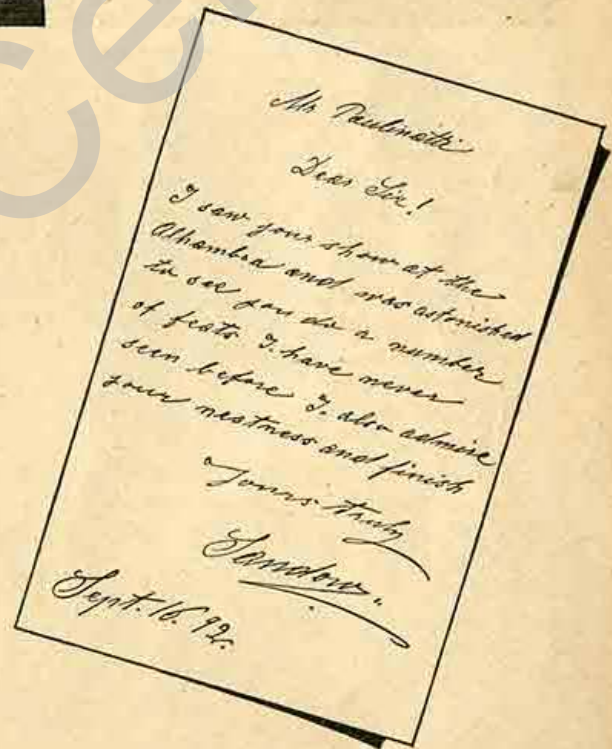 Mr Paulinetti
Dear Sir!
I saw your show at the
Alhambra and was astonished
to see you do a number
of feats I have never
seen before I also admire
your neatness and finish
Yours truly
Sandow.
Sept. 16. 92.